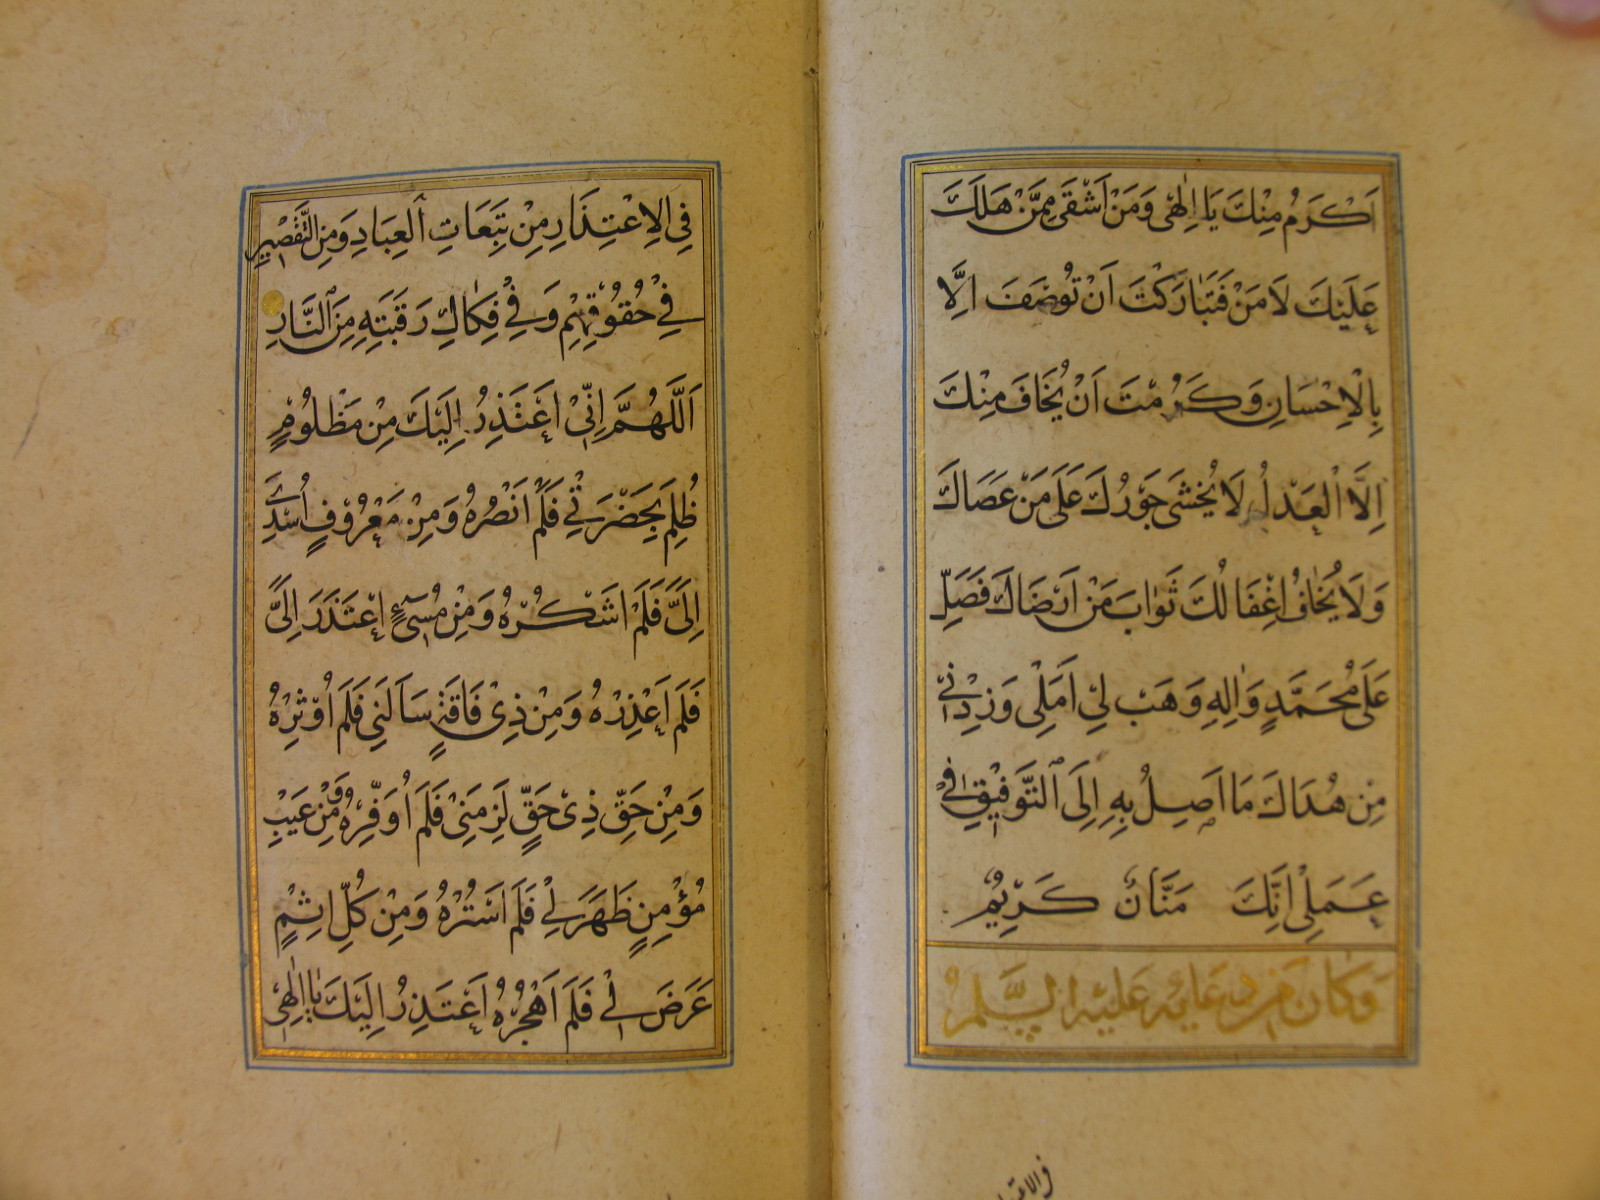 اَكْرَمُ مِنْكَ يَا اِلٰهِي وَمَنْ اَشْقَى مِمَّنْ هَلَكَ
عَلَيْكَ لَا مَنْ فَتَبَارَكْتَ اَنْ تُوصَفَ اِلَّا
بِالْاِحْسَانِ وَكَرُمْتَ اَنْ يُخَافَ مِنْكَ
اِلَّا الْعَدْلُ لَا يُخْشَى جَوْرُكَ عَلَى مَنْ عَصَاكَ
وَلَا يُخَافُ اِغْفَالُكَ ثَوَابَ مَنْ اَرْضَاكَ فَصَلِّ
عَلَى مُحَمَّدٍ وَاٰلِهِ وَهَبْ لِي اَمَلِي وَزِدْنِي
مِنْ هُدَاكَ مَا اَصِلُ بِهِ اِلَى التَّوْفِيقِ فِي
عَمَلِي اِنَّكَ مَنَّانٌ كَرِيمٌ
وَكَانَ مِنْ دُعَائِهِ عَلَيْهِ السَّلٰمُ
فِي الِاعْتِذَارِ مِنْ تَبِعَاتِ الْعِبَادِ وَمِنَ التَّقْصِيرِ
فِي حُقُوقِهِمْ وَفِي فِكَاكِ رَقَبَتِهِ مِنَ النَّارِ
اَللّٰهُمَّ اِنِّي اَعْتَذِرُ اِلَيْكَ مِنْ مَظْلُومٍ
ظُلِمَ بِحَضْرَتِي فَلَمْ اَنْصُرْهُ وَمِنْ مَعْرُوفٍ اُسْدِيَ
اِلَيَّ فَلَمْ اَشْكُرْهُ وَمِنْ مُسِيءٍ اِعْتَذَرَ اِلَيَّ
فَلَمْ اَعْذِرْهُ وَمِنْ ذِي فَاقَةٍ سَاَلَنِي فَلَمْ اُوثِرْهُ
وَمِنْ حَقِّ ذِي حَقٍّ لَزِمَنِي فَلَمْ اُوَفِّرْهُ وَمِنْ عَيْبِ
مُؤْمِنٍ ظَهَرَ لِي فَلَمْ اَسْتُرْهُ وَمِنْ كُلِّ اِثْمٍ
عَرَضَ لِي فَلَمْ اَهْجُرْهُ اَعْتَذِرُ اِلَيْكَ يَا اِلٰهِي